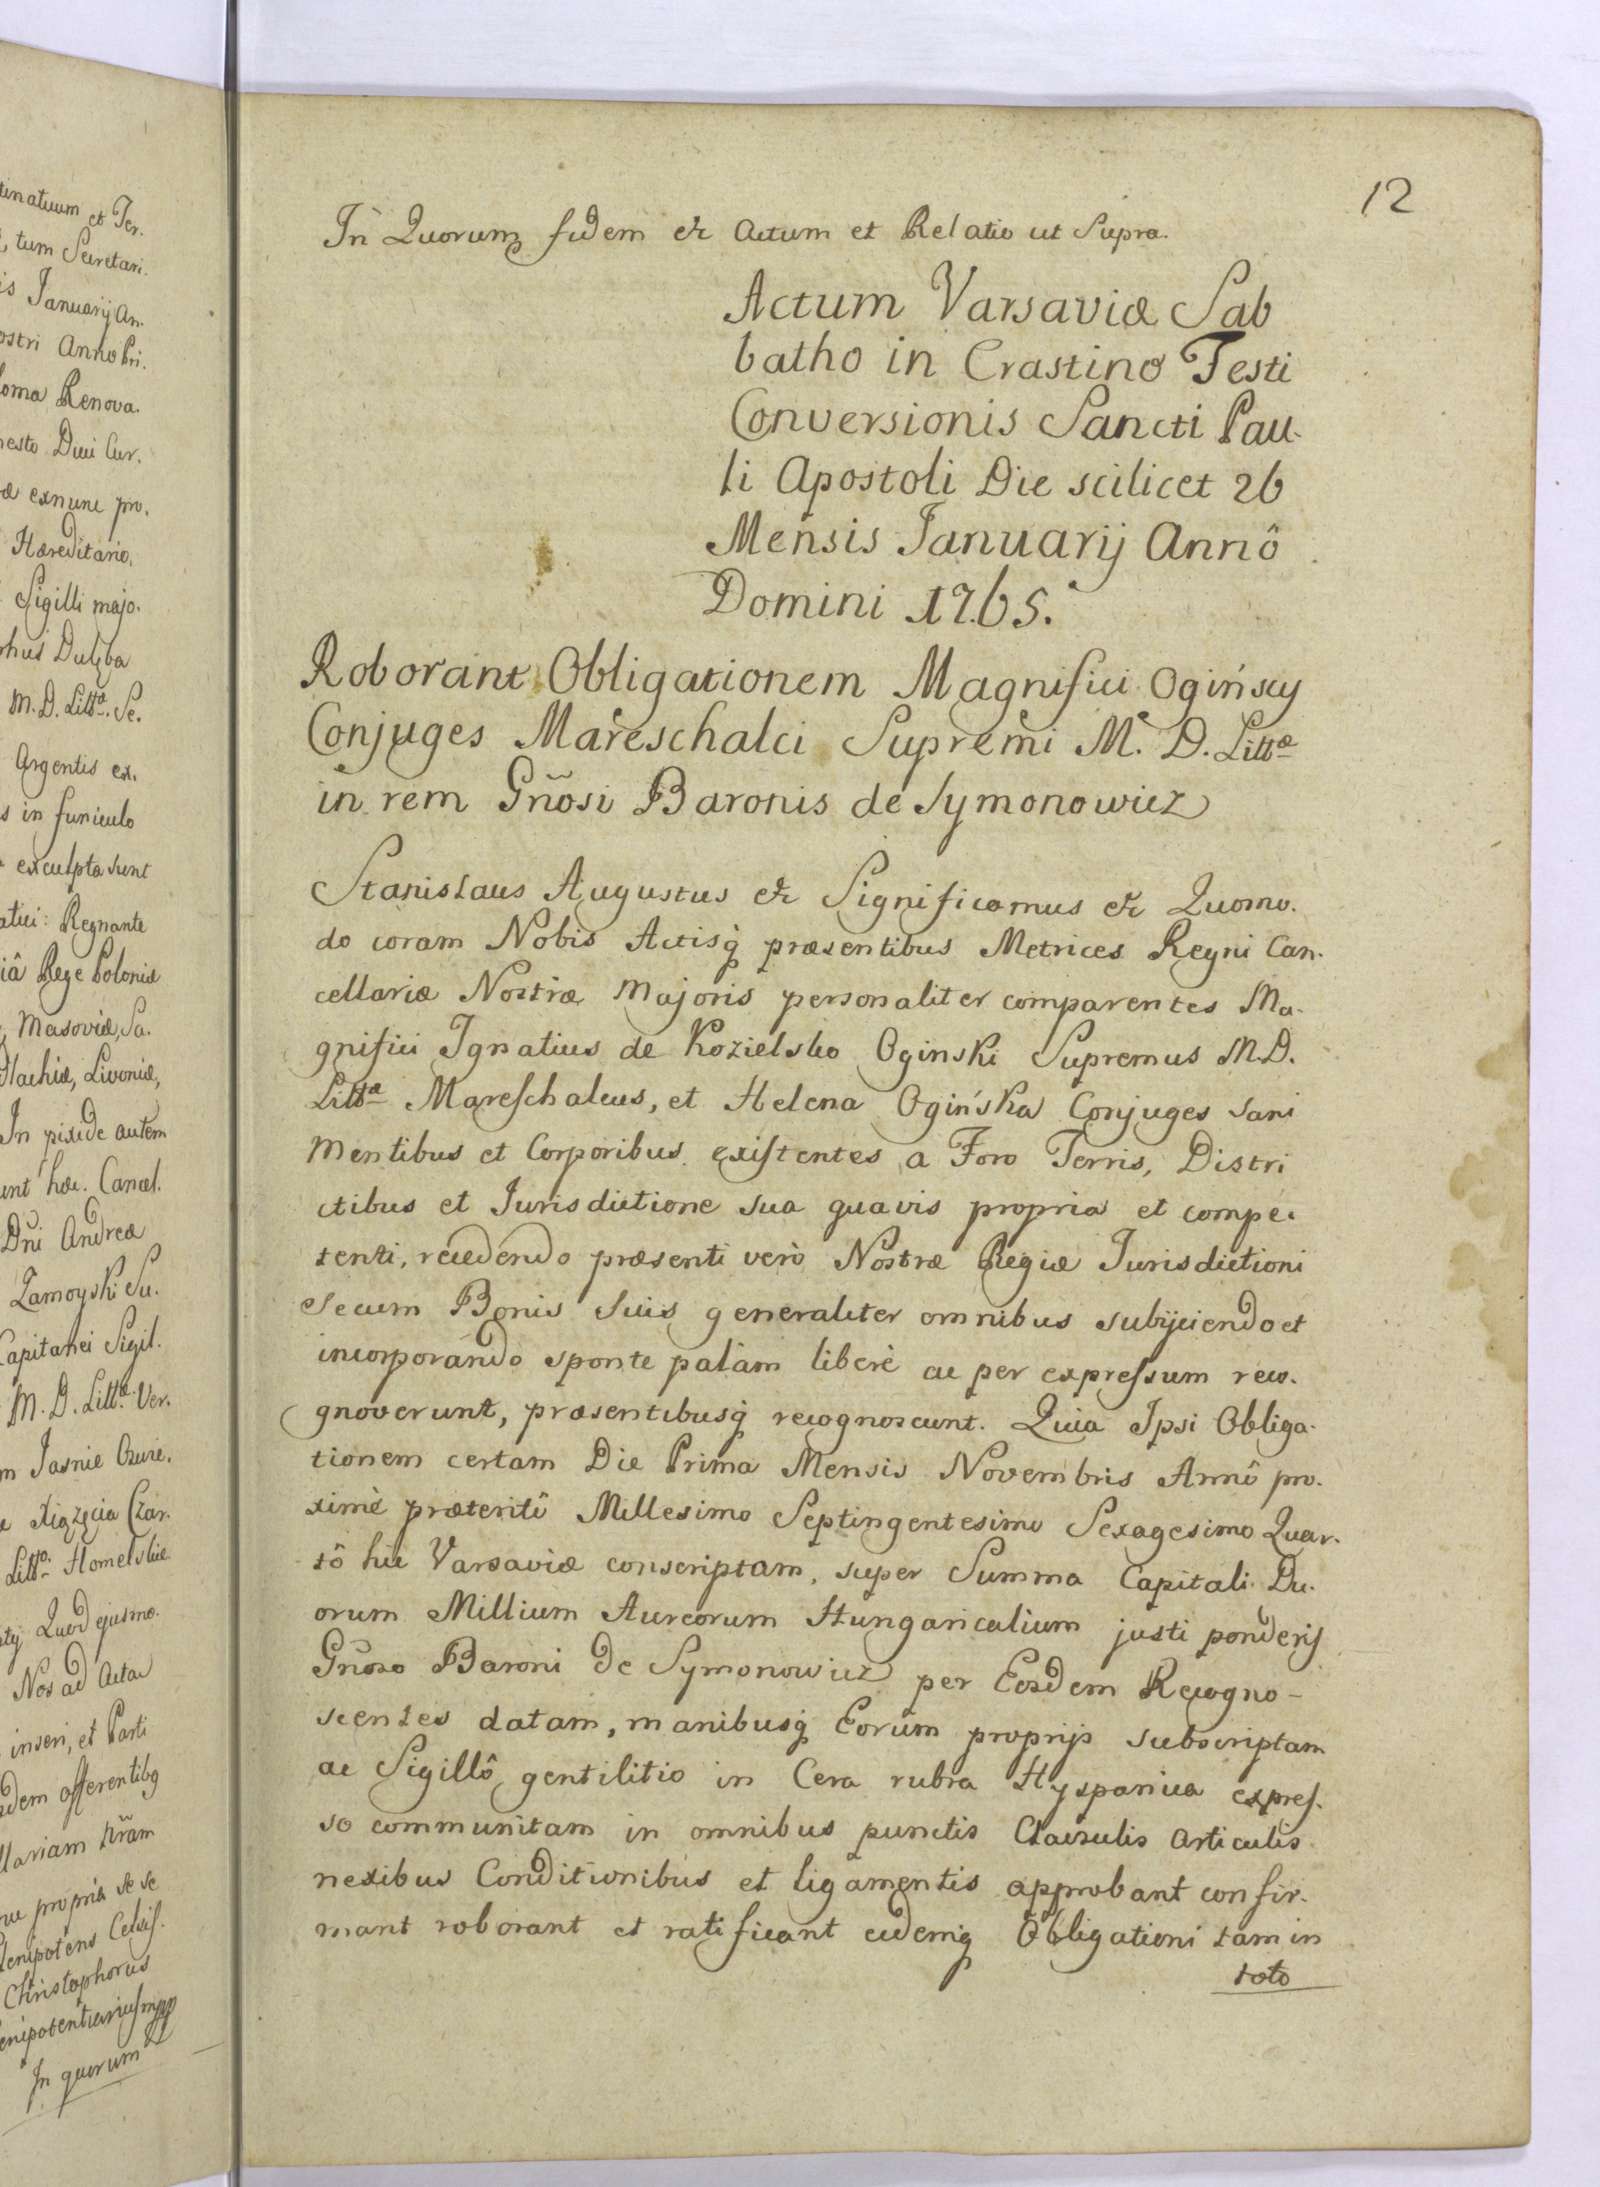 tinatuum et Ter.
tum Secretari.
is Januarij An.
ostri Anno Pri.
loma Renova.
nesto Dni Cur.
æ exnunc pro.
Hæreditario,
Sigilli majo.
phus Dulęba
M. D. Littæ. Se.
Argentis ex.
s in funiculo
exculpta sunt
atici: Regnante
iâ Rege Poloniæ
Masoviæ, Sa.
dlachiæ, Livoniæ,
In pixide autem
unt hæc. Cancel.
Dni Andreæ
Zamoyski Su.
Capitanei Sigil.
M. D. Littæ. Ver.
m Jasnie Oswie.
Xiążęcia Czar.
Litt. Homelskie
Quod ejusmo.
Nos ad Acta
inseri, et Parti
dem offerentibq
llariam nram
propria se se
lenipotens Celsiſ.
Christophorus
enipotentiariusmpp
In quorum
12
In Quorum fidem &c Actum et Relatio ut Supra.
Actum Varsaviæ Sab
batho in Crastino Festi
Conversionis Sancti Pau-
li Apostoli Die scilicet 26
Mensis Januarij Annô
Domini 1765.
Roborant Obligationem Magnifici Ogińscy
Conjuges Mareschalci Supremi M. D. Littæ
in rem Gñosi Baronis de Symonowicz
Stanislaus Augustus &c Significamus &c Quomo.
do coram Nobis Actisq́ præsentibus Metrices Regni Can.
cellariæ Nostræ Majoris personaliter comparentes Ma.
gnifici Ignatius de Kozielsko Oginski Supremus M.D.
Littæ Mareſchalcus, et Helena Ogińska Conjuges sani
Mentibus et Corporibus exiſtentes a Foro Terris, Distri
ctibus et Jurisdictione sua quavis propria et compe.
tenti, recedendo præsenti verò Nostræ Regiæ Jurisdictioni
secum Bonis suis generaliter omnibus subijciendo et
incorporando sponte palàm liberè ac per expreſsum reco.
gnoverunt, præsentibusq́ recognoscunt. Quia Ipsi Obliga.
tionem certam Die Prima Mensis Novembris Annô pro.
ximè præteritô Millesimo Septingentesimo Sexagesimo Quar.
tô hic Varsaviæ conscriptam, super Summa Capitali Du.
orum Millium Aureorum Hungaricalium justi ponderis
Gñoso Baroni de Symonowicz per Eosdem Recogno-
scentes datam, manibusq́ Eorum proprijs subscriptam
ac Sigillô gentilitio in Cera rubra Hyspanica expreſ.
so communitam in omnibus punctis Clausulis Articulis
nexibus Conditionibus et ligamentis approbant confir.
mant roborant et ratificant eidemq́ Obligationi tam in
toto